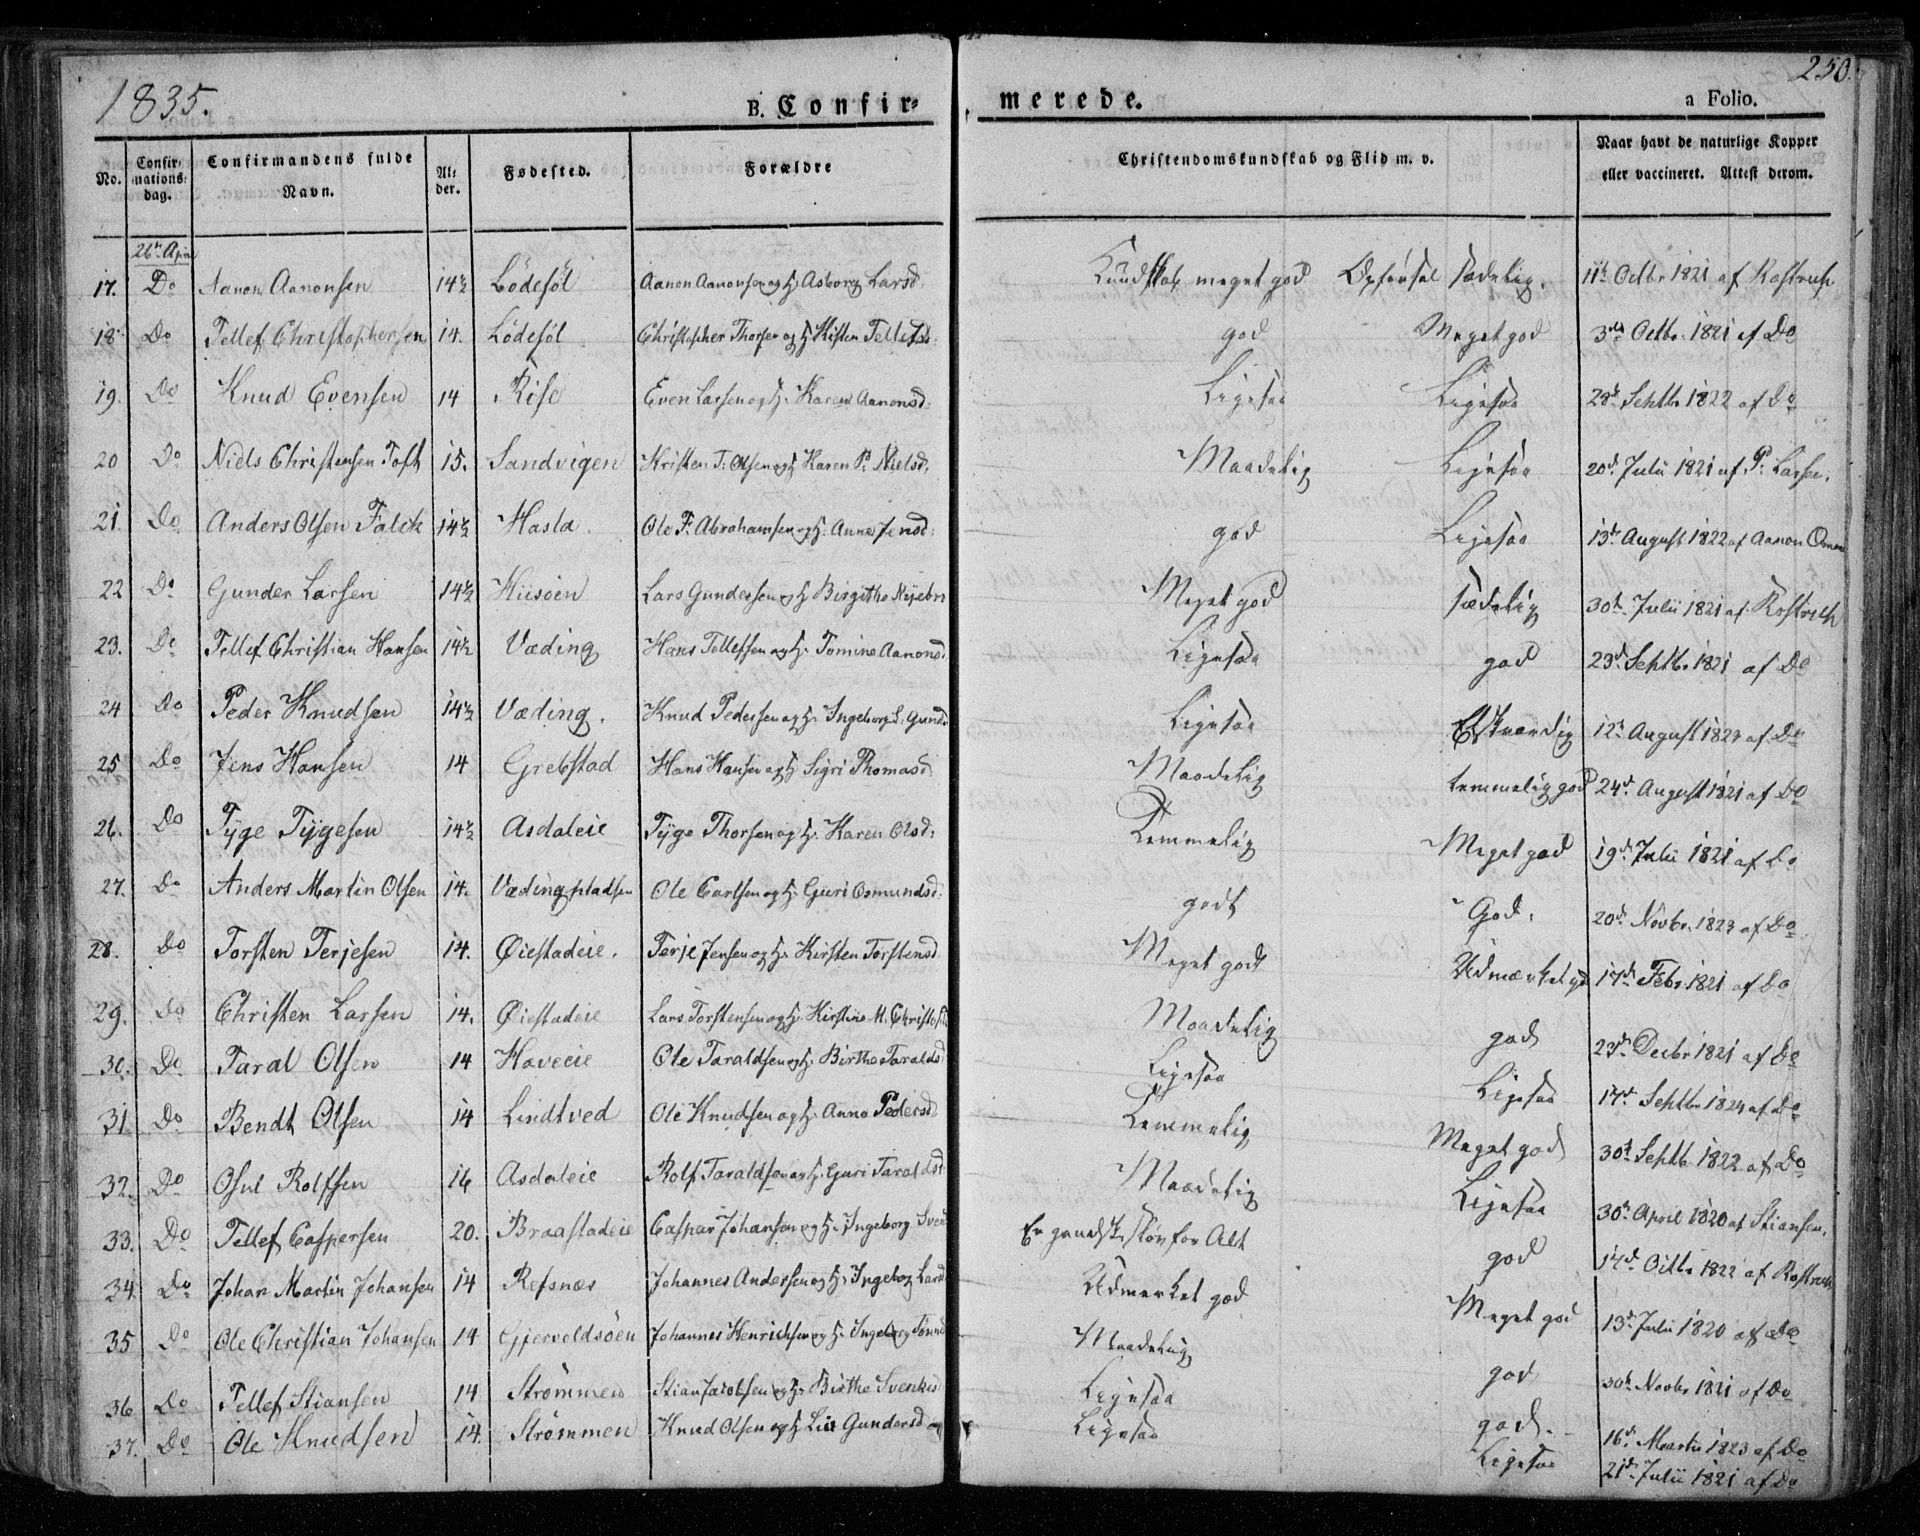 1835.
B. Confirmerede.
250.
a Folio.
No. Confirmationsdag. Confirmandens fulde Navn. Alder. Fødested. Forældre Christendomskundskab og Flid m. v. Naar havt de naturlige Kopper eller vaccineret. Attest derom.
26de April
17. Do Aanon Aanonsen 14½ Lødesøl Aanon Aanonsen og H. Asborg Larsd. Kundskab meget god Opførsel sædelig. 11te Octbr 1821 af Rostrup
18. Do Tellef Christophersen 14. Lødesøl Christopher Thorsen og H. Kisten Tellefsd: god Meget god 3die Octbr. 1821 af Do
19. Do Knud Evensen 14 Rise Even Larsen og H. Karen Aanonsd. Ligesaa Ligesaa 28de Septbr 1822 af Do
20 Do Niels Christensen Toft 15. Sandvigen Kristen T. Olsen og H Karen P. Nielsd. Maadelig Ligesaa 20de Julii 1821 af P. Larsen.
21. Do Anders Olsen Falck 14½ Hasla Ole F. Abrahamsen og H. Anne Jensd: god Ligesaa 13de August 1822 af Aanon
22 Do Gunder Larsen 14½ Hiisøen Lars Gundersen og H Birgithe Meget god sædelig 30te Julii 1821 af Rostrup
23. Do Tellef Christian Hansen 14½ Væding Hans Tellefsen og H. Tomine Aanonsd. Ligesaa god 23de Septbr. 1821 af Do
24 Do Peder Knudsen 14½ Væding. Knud Pedersen og H. Ingeborg L. Gunds Ligesaa Elskværdig 12te August 1823 af Do
25 Do Jens Hansen 14 Grebstad Hans Hansen og H Sigri Thomasd Maadelig temmelig god 24de August 1821 af Do
26. Do Tÿge Tÿgesen 14½ Asdaleie Tÿge Thorsen og H. Karen Olsd: Temmelig Meget god 19de Julii 1821 af Do
27. Do Anders Martin Olsen 14. Væding pladsen Ole Carlsen og H. Guri Osmundsd: godt God. 20de Novbr. 1823 af Do
28. Do Torsten Terjesen 14. Øiestadeie. Terje Jensen og H. Kirsten Torstensd. Meget godt Udmærket god 17de Febr. 1821 af Do
29. Do Christen Larsen 14. Øiestadeie Lars Torstensen og H. Kirstine M. Christensd Maadelig god 23de Decbr 1821 af Do
30. Do Taral Olsen 14 Haveeie Ole Taraldsen og H. Birthe Taralds Ligesaa Ligesaa 17de Septbr 1824 af Do
31 Do Bendt Olsen 14 Lindtved Ole Knudsen og H. Anne Pedersd Temmelig Meget god 30te Septbr 1822 af Do
32. Do Osul Rolfsen 16 Asdaleie Rolf Taraldsen og H. Guri Taraldsd: Maadelig Ligesaa 30te April 1820 af Stiansen.
33. Do Tellef Caspersen 20. Braastadeie Caspar Johansen og H. Ingeborg Svend Er gandske sløv for Alt god 14de Octbr 1822 af Rostrup
34. Do Johan Martin Johansen 14 Refsnæs Johannes Andersen og H. Ingeborg Larsd Udmerket god Meget god 13de Julii 1820 af Do
35 Do Ole Christian Johansen 14 Gjervoldsøen Johannes Henrichsen og H. Ingeborg Tønnes Maadelig god 30te Novbr 1821 af Do
36 Do Tellef Stiansen 14 Strømmen Stian Jacobsen og H. Birthe Svenkes Ligesaa god. 16de Martii 1823 af Do
37. Do Ole Knudsen 14. Strømmen Knud Olsen og H Live Gundersd Ligesaa Ligesaa 21de Julii 1821 af Do